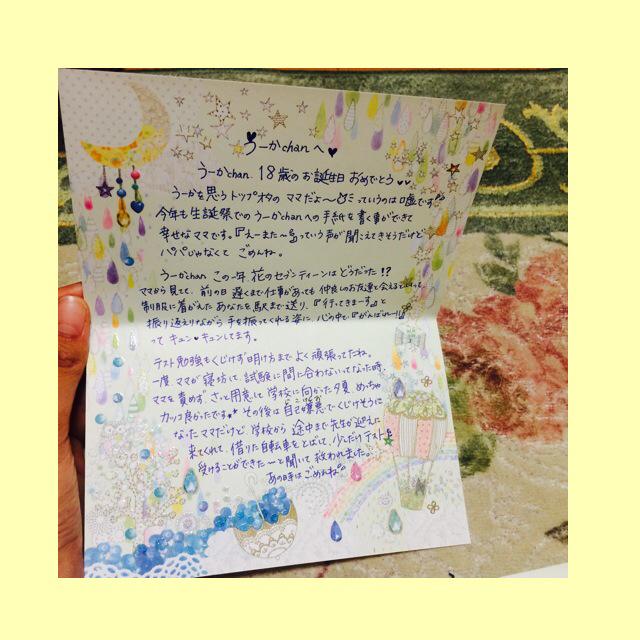 うーかchanへ♥
うーかchan、18歳のお誕生日おめでとう♥♥
うーかを思うトップオタのママだよ〜っていうのは嘘です
今年も生誕祭でのうーかchanへの手紙を書く事ができて
幸せなママです。『えーまた〜』っていう声が聞こえてきそうだけど
パパじゃなくて ごめんね。
うーかchan この一年、花のセブンティーンはどうだった!?
ママから見てて、前の日 遅くまで仕事があっても 仲良しのお友達と会えるといって、
制服に着がえた あなたを 駅まで送り、『行ってきまーす』と
振り返りながら 手を振ってくれる姿に、心の中で『がんばれー!!』
って キュン♥キュンしてます。
テスト勉強もくじけず明け方まで よく頑張ってたね。
一度 ママが 寝坊して、試験に間に合わないってなった時、
ママを責めず、さっと用意して 学校に向かった夕夏 めっちゃ
カッコ良かったですよ その後は 自己嫌悪でくじけそうに
なったママだけど、学校から 途中まで 先生が迎えに
来てくれて、借りた自転車をとばして、少しだけ テストを
受けることができた〜と聞いて 救われました。
あの時は ごめんね